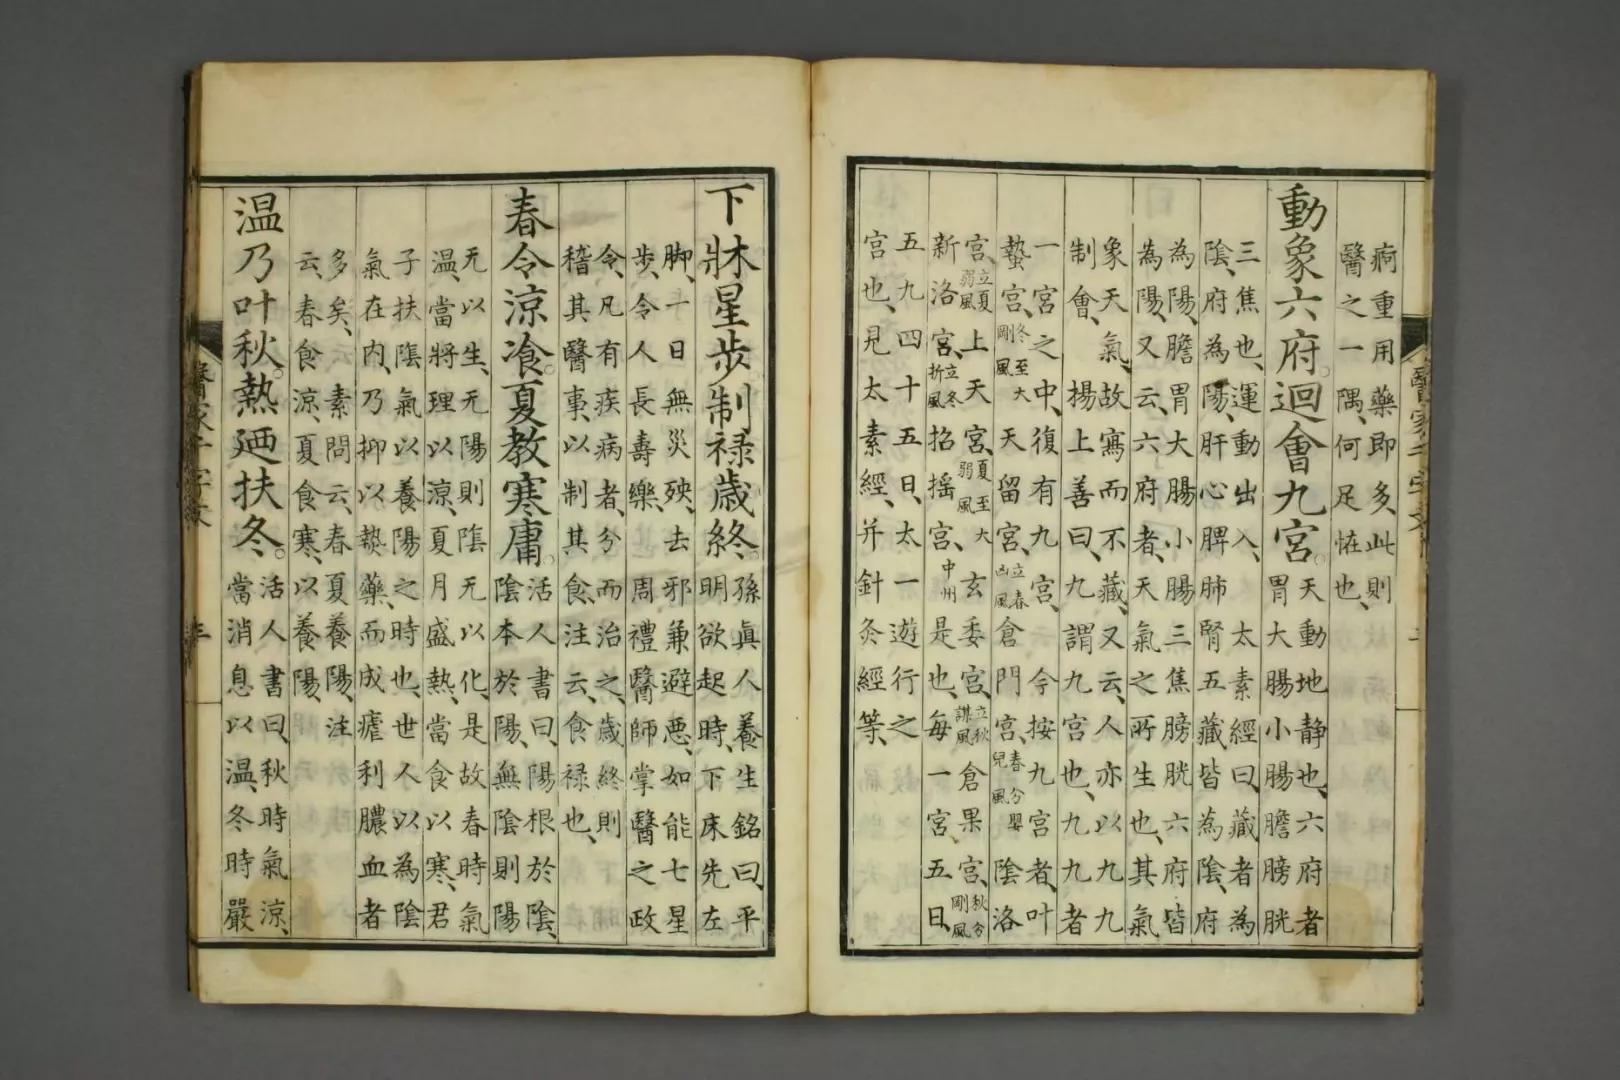 痾重用藥即多、此則
醫之一隅、何足恠也、
動象六府。迴會九宮。天動地静也、六府者
胃大腸小腸膽膀胱
三焦也、運動出入、太素經曰、藏者為
陰、府為陽、肝心脾肺腎五藏皆為陰、府
為陽、膽胃大腸小腸三焦膀胱六府皆
為陽、又云、六府者、天氣之所生也、其氣
象天氣、故寫而不藏、又云、人亦以九九
制會、揚上善曰、九謂九宮也、九九者
一宮之中、復有九宮、今按九宮者、叶
蟄宮、冬至大剛風天留宮、立春凶風倉門宮、春分嬰兒風陰洛
宮、立夏弱風上天宮、夏至大弱風玄委宮、立秋謀風倉果宮、秋分剛風
新洛宮、立冬折風招摇宮、中州是也、每一宮五日、
五九四十五日、太一遊行之
宮也、見太素經、并針灸經等、
下牀星步。制禄歳終。孫真人養生銘曰、平
明欲起時、下床先左
脚、一日無災殃、去邪兼避惡、如能七星
步、令人長壽樂、周禮醫師掌醫之政
令、凡有疾病者、分而治之、歳終則
稽其醫事、以制其食、注云、食禄也、
春令涼飡。夏教寒庸。活人書曰、陽根於陰、
陰本於陽、無陰則陽
无以生、无陽則陰无以化、是故春時氣
温、當將理以涼、夏月盛熱、當食以寒、君
子扶陰氣以養陽之時也、世人以為陰
氣在内、乃抑以熱藥、而成瘧利膿血者
多矣、云素問云、春夏養陽、注
云、春食涼、夏食寒、以養陽、
温乃叶秋。熱廼扶冬。活人書曰、秋時氣涼、
當消息以温、冬時嚴